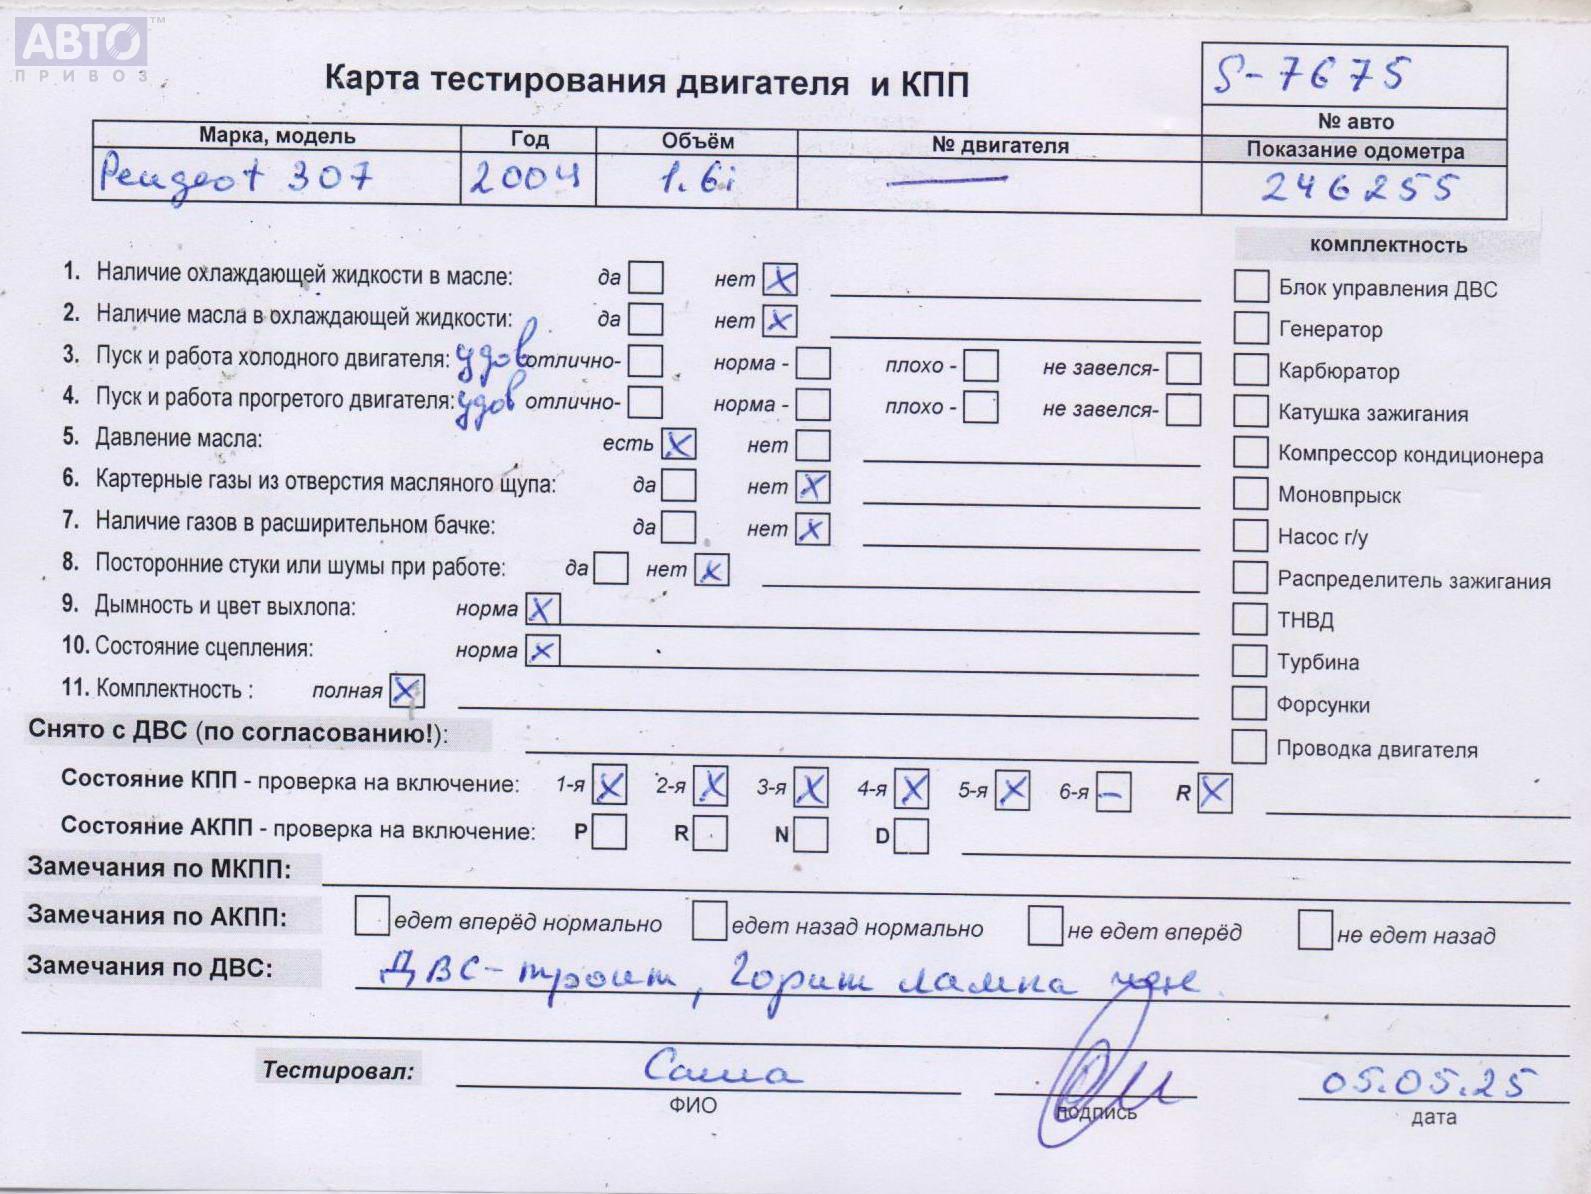 АВТО™
ПРИВОЗ
Карта тестирования двигателя и КПП
S-7675
№ авто
Марка, модель Год Объём № двигателя Показание одометра
Peugeot 307 2004 1.6i — 246255
комплектность
1. Наличие охлаждающей жидкости в масле: да нет X
2. Наличие масла в охлаждающей жидкости: да нет X
3. Пуск и работа холодного двигателя: удов отлично- норма - плохо - не завелся-
4. Пуск и работа прогретого двигателя: удов отлично- норма - плохо - не завелся-
5. Давление масла: есть X нет
6. Картерные газы из отверстия масляного щупа: да нет X
7. Наличие газов в расширительном бачке: да нет X
8. Посторонние стуки или шумы при работе: да нет X
9. Дымность и цвет выхлопа: норма X
10. Состояние сцепления: норма X
11. Комплектность : полная X
Блок управления ДВС
Генератор
Карбюратор
Катушка зажигания
Компрессор кондиционера
Моновпрыск
Насос г/у
Распределитель зажигания
ТНВД
Турбина
Форсунки
Проводка двигателя
Снято с ДВС (по согласованию!):
Состояние КПП - проверка на включение: 1-я X 2-я X 3-я X 4-я X 5-я X 6-я – R X
Состояние АКПП - проверка на включение: P R N D
Замечания по МКПП:
Замечания по АКПП: едет вперёд нормально едет назад нормально не едет вперёд не едет назад
Замечания по ДВС: ДВС-троит, горит лампа
Тестировал: Саша 05.05.25
ФИО подпись дата